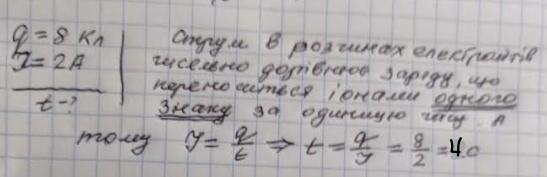 q = 8 Кл
I = 2 А
t - ?
Струм в розчинах електролітів
чисельно дорівнює заряду, що
переноситься іонами одного
знаку за одиницю часу. А
тому I = q/t ⇒ t = q/I = 8/2 = 4 с